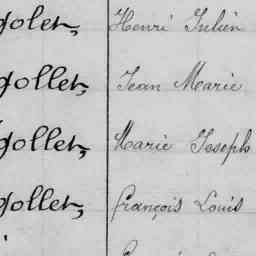 golet, Henri Julien
gollet, Jean Marie
gollet, Marie Joseph
gollet, François Louis